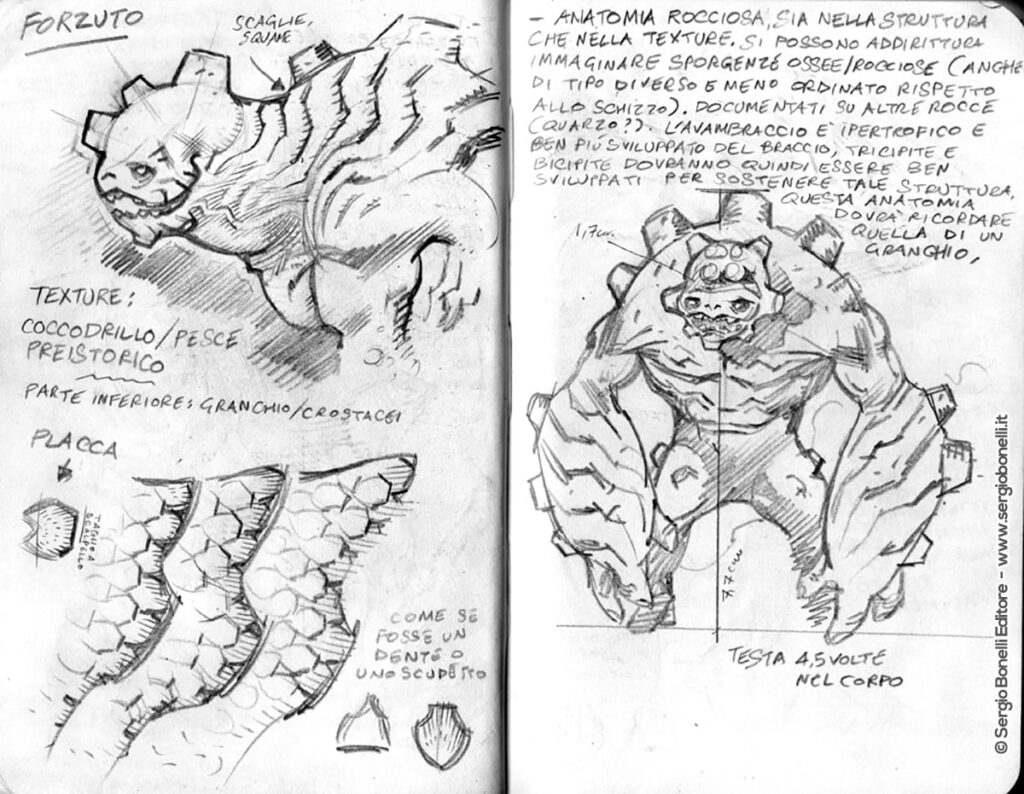 FORZUTO
SCAGLIE,
SQUAME
TEXTURE:
COCCODRILLO/PESCE
PREISTORICO
PARTE INFERIORE: GRANCHIO/CROSTACEI
PLACCA
TAGLIO A
SCALPELLO
COME SE
FOSSE UN
DENTE O
UNO SCUDETTO
- ANATOMIA ROCCIOSA, SIA NELLA STRUTTURA
CHE NELLA TEXTURE. SI POSSONO ADDIRITTURA
IMMAGINARE SPORGENZE OSSEE/ROCCIOSE (ANCHE
DI TIPO DIVERSO E MENO ORDINATO RISPETTO
ALLO SCHIZZO). DOCUMENTATI SU ALTRE ROCCE
(QUARZO?). L'AVAMBRACCIO E' IPERTROFICO E
BEN PIU' SVILUPPATO DEL BRACCIO, TRICIPITE E
BICIPITE DOVRANNO QUINDI ESSERE BEN
SVILUPPATI PER SOSTENERE TALE STRUTTURA.
QUESTA ANATOMIA
DOVRA' RICORDARE
QUELLA DI UN
GRANCHIO.
1,7cm.
7,7cm
TESTA 4,5 VOLTE
NEL CORPO
© Sergio Bonelli Editore - www.sergiobonelli.it